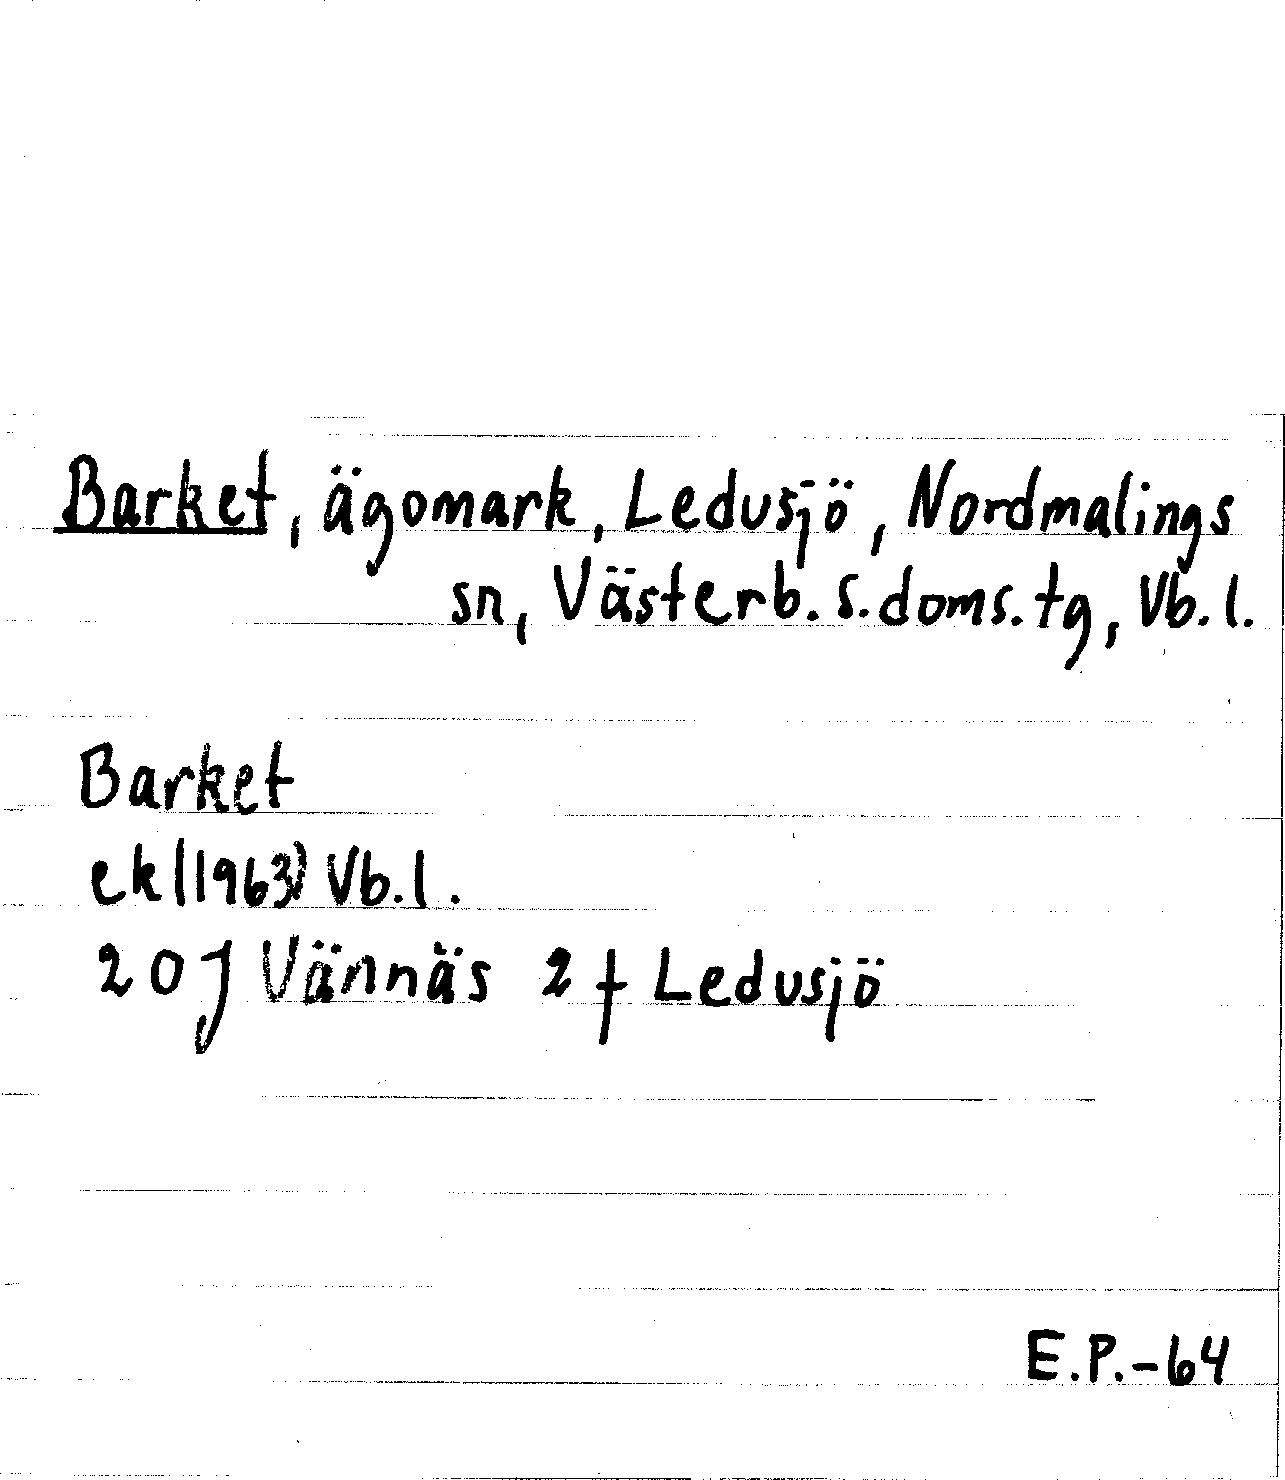 Barket, ägomark, Ledusjö, Nordmalings
sn, Västerb. s. doms. tg, Vb. l.
Barket
ek (1963) Vb. l.
20 J Vännäs 2 f Ledusjö
E.P.-64